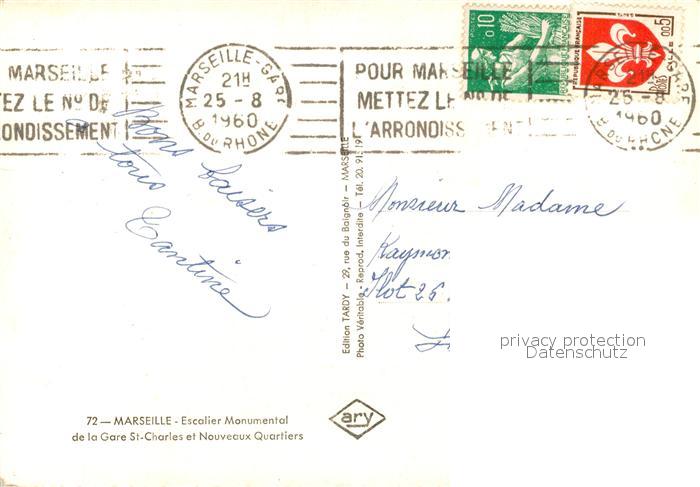 MARSEILLE
TEZ LE Nº DE
ONDISSEMENT
MARSEILLE-GARE
21H
25-8
1960
B. DU RHONE
POUR MARSEILLE
METTEZ LE Nº DE
L'ARRONDISSEMENT
POSTES
0,10
REPUBLIQUE FRANÇAISE
0,05
25-8
1960
B. DU RHONE
Bons baisers
à tous
Tantine
Edition TARDY — 29, rue du Baignoir — MARSEILLE
Photo Véritable - Reprod. Interdite — Tél. 20.91.19
Monsieur Madame
Raymon
Ilot 26.
privacy protection
Datenschutz
72 — MARSEILLE - Escalier Monumental
de la Gare St-Charles et Nouveaux Quartiers
ary